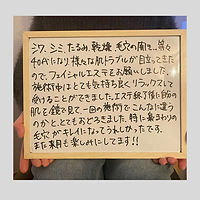 シワ、シミ、たるみ、乾燥、毛穴の開き…等々
40代になり様々な肌トラブルが目立ってきた
ので、フェイシャルエステをお願いしました。
施術中はとても気持ち良くリラックスして
受けることができました。エステ終了後に自分の
肌を鏡で見て、一回の施術でこんなに違う
のかと、とてもおどろきました。特に鼻まわりの
毛穴がキレイになってうれしかったです。
また来月も楽しみにしてます!!